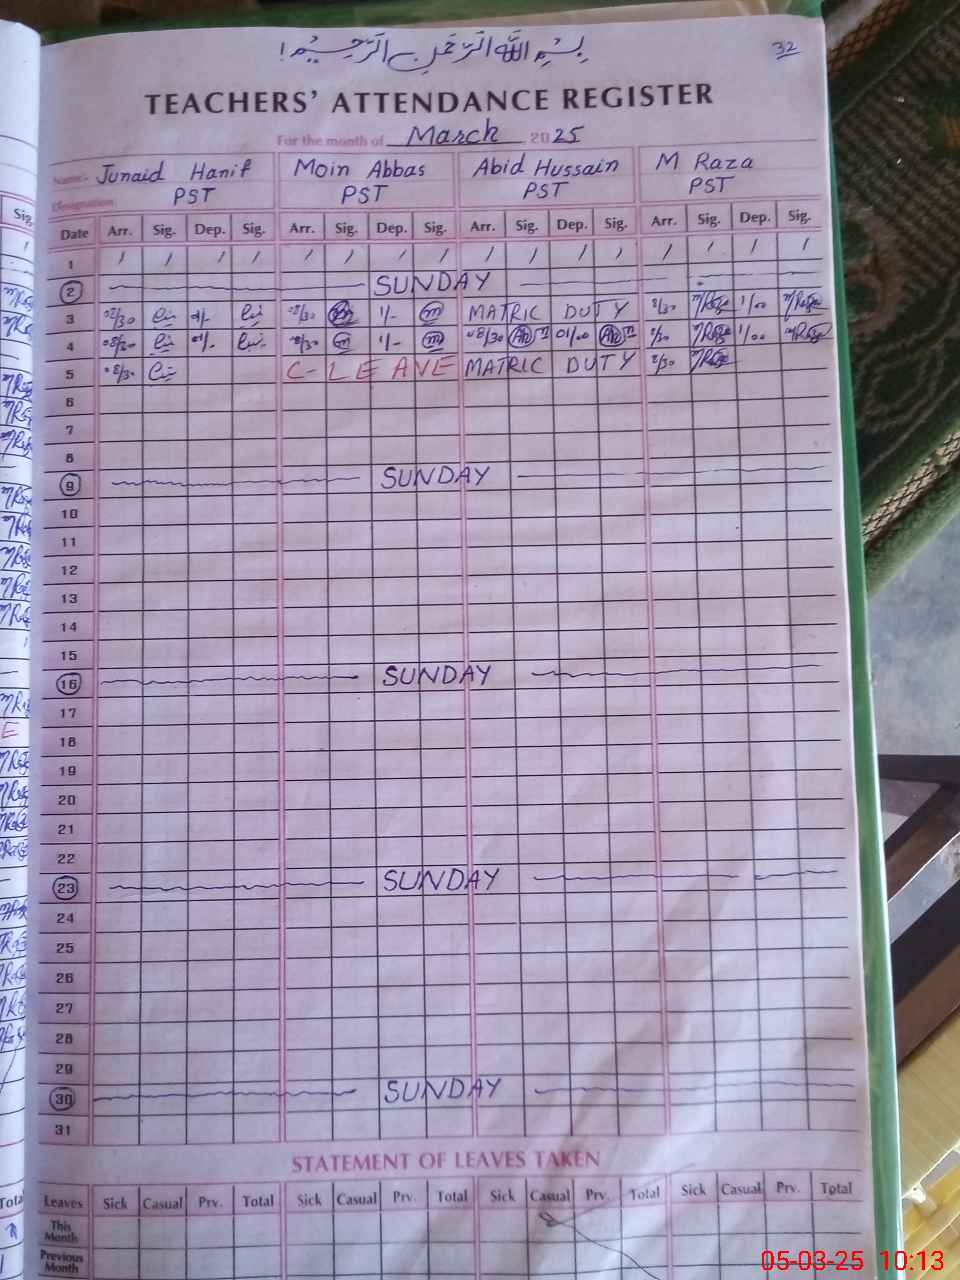 بِسْمِ اللهِ الرَّحْمٰنِ الرَّحِيْمِ !
32
TEACHERS' ATTENDANCE REGISTER
For the month of March 2025
Name:- Junaid Hanif Moin Abbas Abid Hussain M Raza
Designation: PST PST PST PST
Date Arr. Sig. Dep. Sig. Arr. Sig. Dep. Sig. Arr. Sig. Dep. Sig. Arr. Sig. Dep. Sig.
1 / / / / / / / / / / / / / / / /
2 SUNDAY
3 08/30 1/- m MATRIC DUTY 8/30 MRaza 1/00 MRaza
4 m 1/- m 08/30 01/00 MRaza 1/00 MRaza
5 08/30 C-LEAVE MATRIC DUTY 8/30 MRaza
6
7
8
9 SUNDAY
10
11
12
13
14
15
16 SUNDAY
17
18
19
20
21
22
23 SUNDAY
24
25
26
27
28
29
30 SUNDAY
31
STATEMENT OF LEAVES TAKEN
Leaves Sick Casual Prv. Total Sick Casual Prv. Total Sick Casual Prv. Total Sick Casual Prv. Total
This Month
Previous Month
05-03-25 10:13